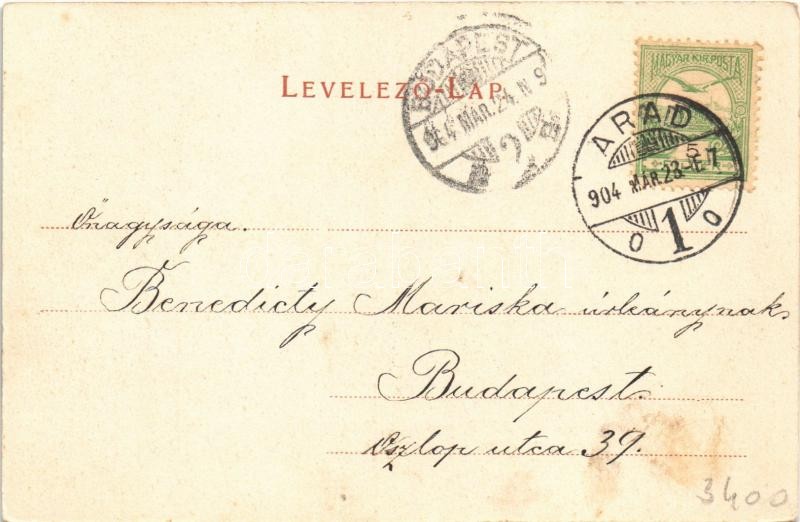 LEVELEZŐ-LAP
BUDAPEST
904 MAR. 24. N 9
MAGYAR KIR. POSTA
ARAD
904 MAR. 23
1
Őnagysága.
Benedicty Mariska úrleánynak
Budapest.
Oszlop utca 39.
3400